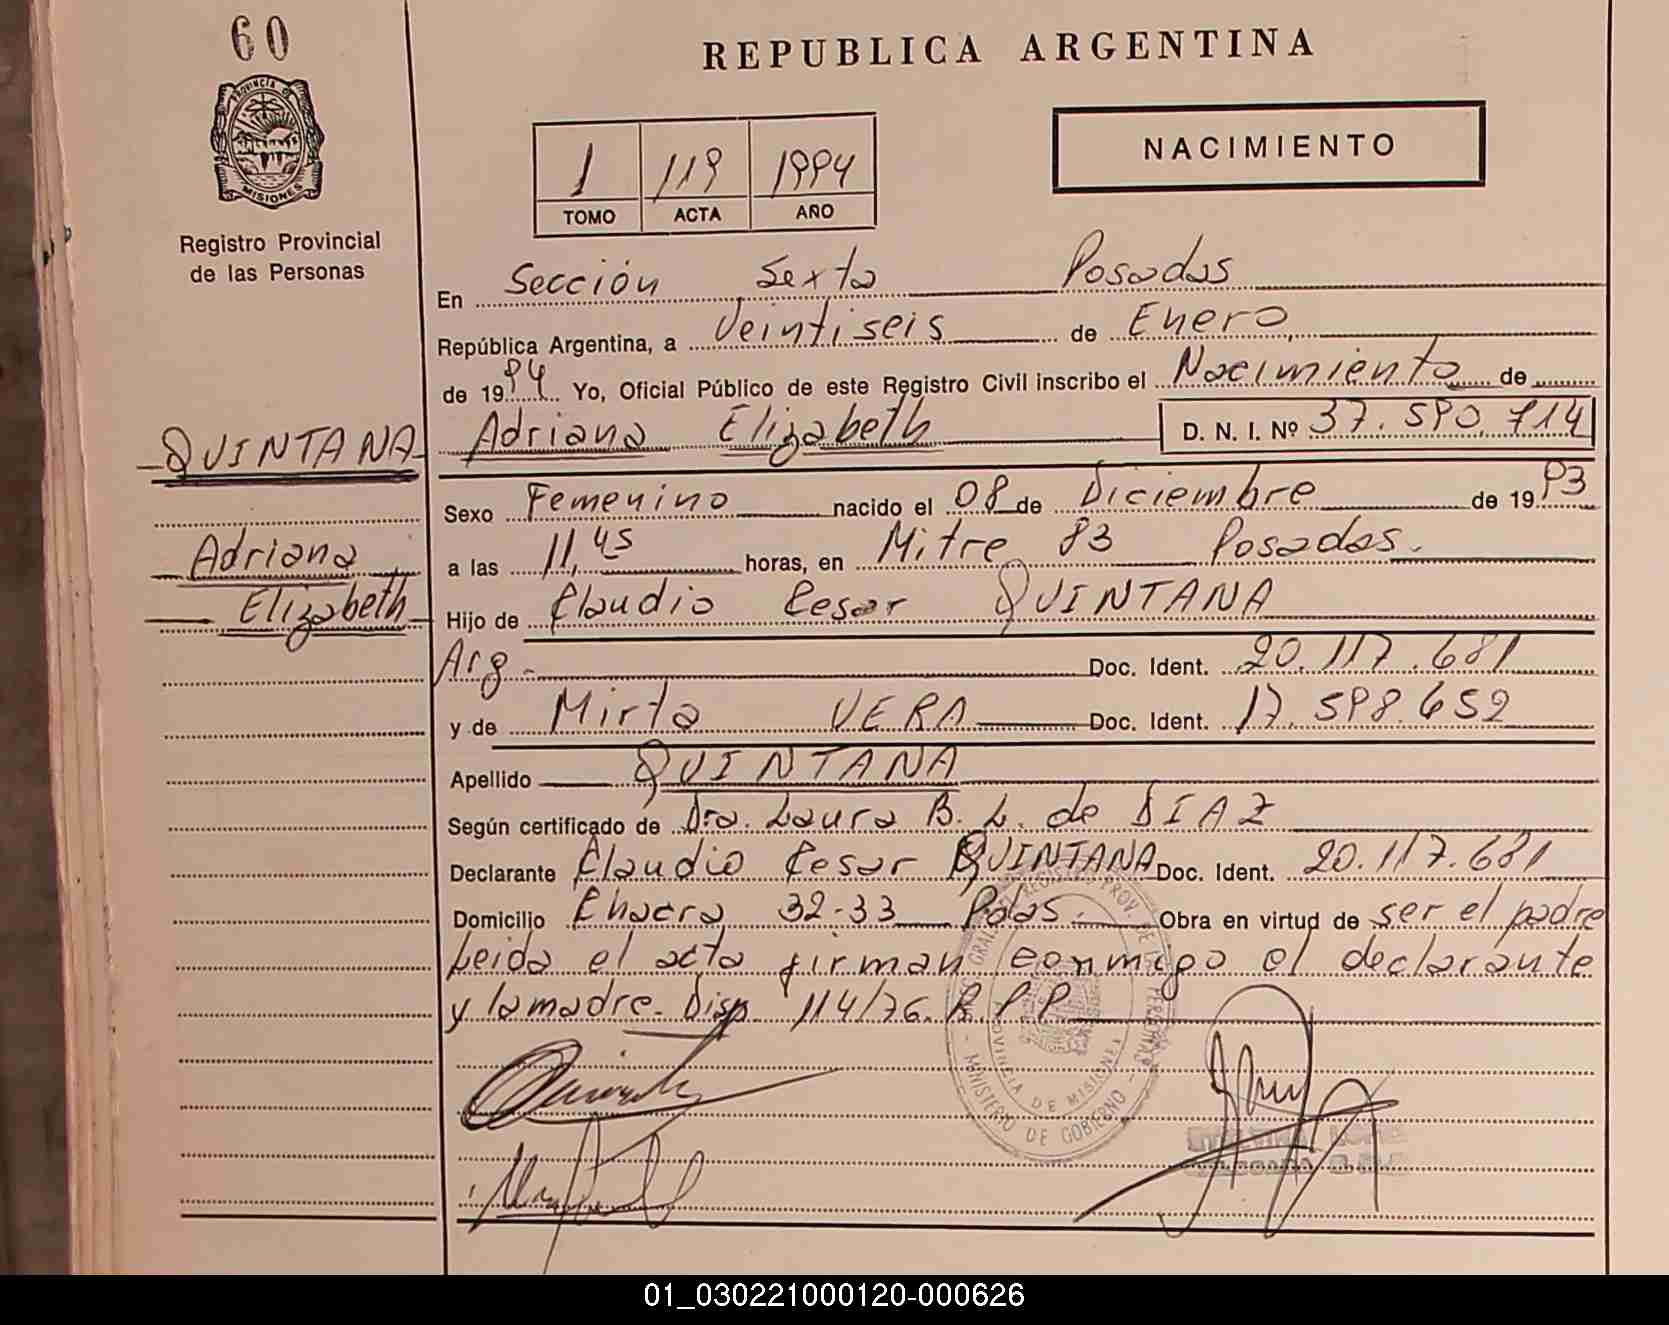 60
REPUBLICA ARGENTINA
PROVINCIA DE MISIONES
Registro Provincial
de las Personas
1 119 1994
TOMO ACTA AÑO
NACIMIENTO
En Sección Sexta Posadas
República Argentina, a Veintiseis de Enero
de 1994 Yo, Oficial Público de este Registro Civil inscribo el Nacimiento de
QUINTANA Adriana Elizabeth D. N. I. Nº 37.590.714
Sexo Femenino nacido el 08 de Diciembre de 1993
Adriana a las 11,45 horas, en Mitre 83 Posadas.
Elizabeth Hijo de Claudio Cesar QUINTANA
Arg. Doc. Ident. 20.117.681
y de Mirta VERA Doc. Ident. 17.598.652
Apellido QUINTANA
Según certificado de Dra. Laura B. L. de DIAZ
Declarante Claudio Cesar QUINTANA Doc. Ident. 20.117.681
Domicilio Chacra 32-33 Pdas. Obra en virtud de ser el padre
Leida el acta firman conmigo el declarante
y la madre. Disp. 114/76. R.P.P.
PROVINCIA DE MISIONES
MINISTERIO DE GOBIERNO
01_030221000120-000626